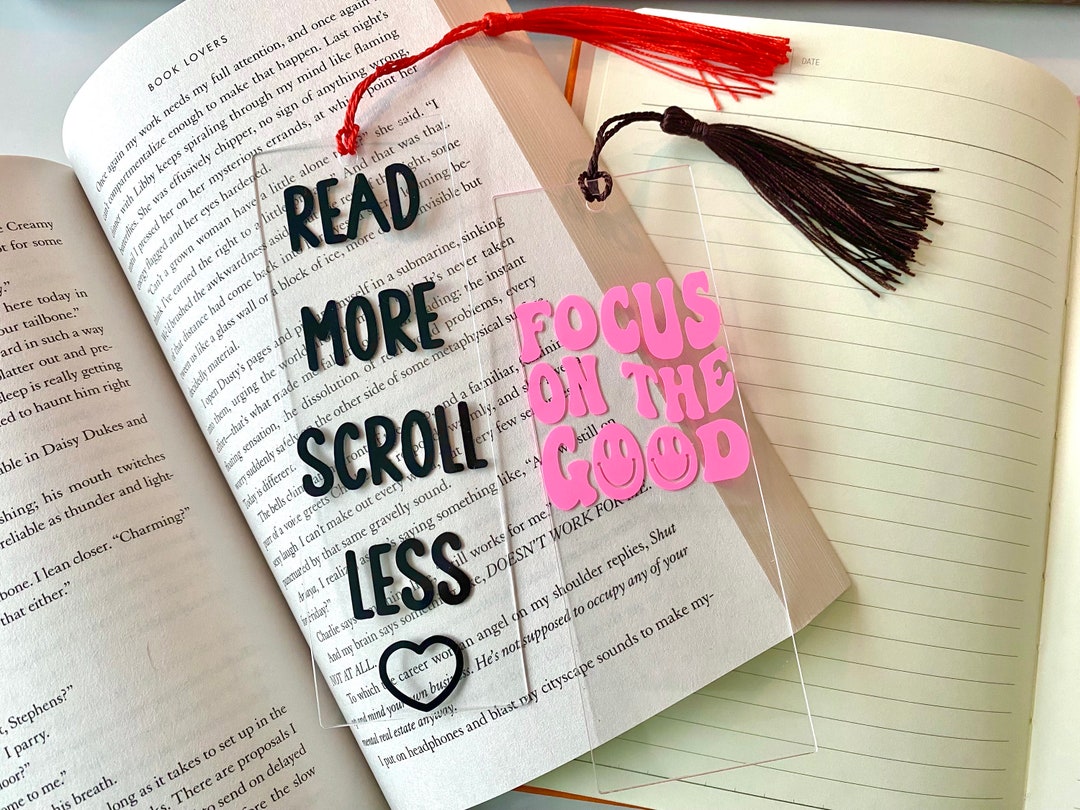 READ
MORE
SCROLL
LESS
FOCUS
ON THE
GOOD
BOOK LOVERS
Once again my work needs my full attention, and once again I
compartmentalize enough to make that happen. Last night's
with Libby keeps spiraling through my mind like flaming
She was effusively chipper, no sign of anything wrong
I pressed her on her mysterious errands, at which point her
energy flagged and her eyes hardened.
"Can't a grown woman have a little alone she said. "I
I've earned the right to a little And that was
We'd brushed the awkwardness aside but
that distance had come back into invisible but
us like a glass wall or a block of ice, more
material.
I open Dusty's pages and myself in a submarine, sinking
into them, urging the world It's never taken
effort—that's what made me fall the instant
sensation, the dissolution of problems, every
worry suddenly safely on the other side of some metaphysical
Today is different.
The bells chime and a familiar,
purr of a voice greets
laugh. I can't make out every
punctuated by that same gravelly sound.
I realize saying something like, still on
Friday?"
Charlie says works for me.
And my brain says something like, DOESN'T WORK FOR ME.
NOT AT ALL.
To which the career woman angel on my shoulder replies, Shut
and mind your own business. He's not supposed to occupy any of your
mental real estate anyway.
I put on headphones and blast my cityscape sounds to make my-
Creamy
not for some
here today in
our tailbone."
ard in such a way
latter out and pre-
sleep is really getting
ed to haunt him right
able in Daisy Dukes and
shing; his mouth twitches
reliable as thunder and light-
bone. I lean closer. "Charming?"
that either."
Stephens?"
I parry.
oor?"
e to me."
his breath.
long as it takes to set up in the
There are proposals I
to send on delayed
before the slow
DATE